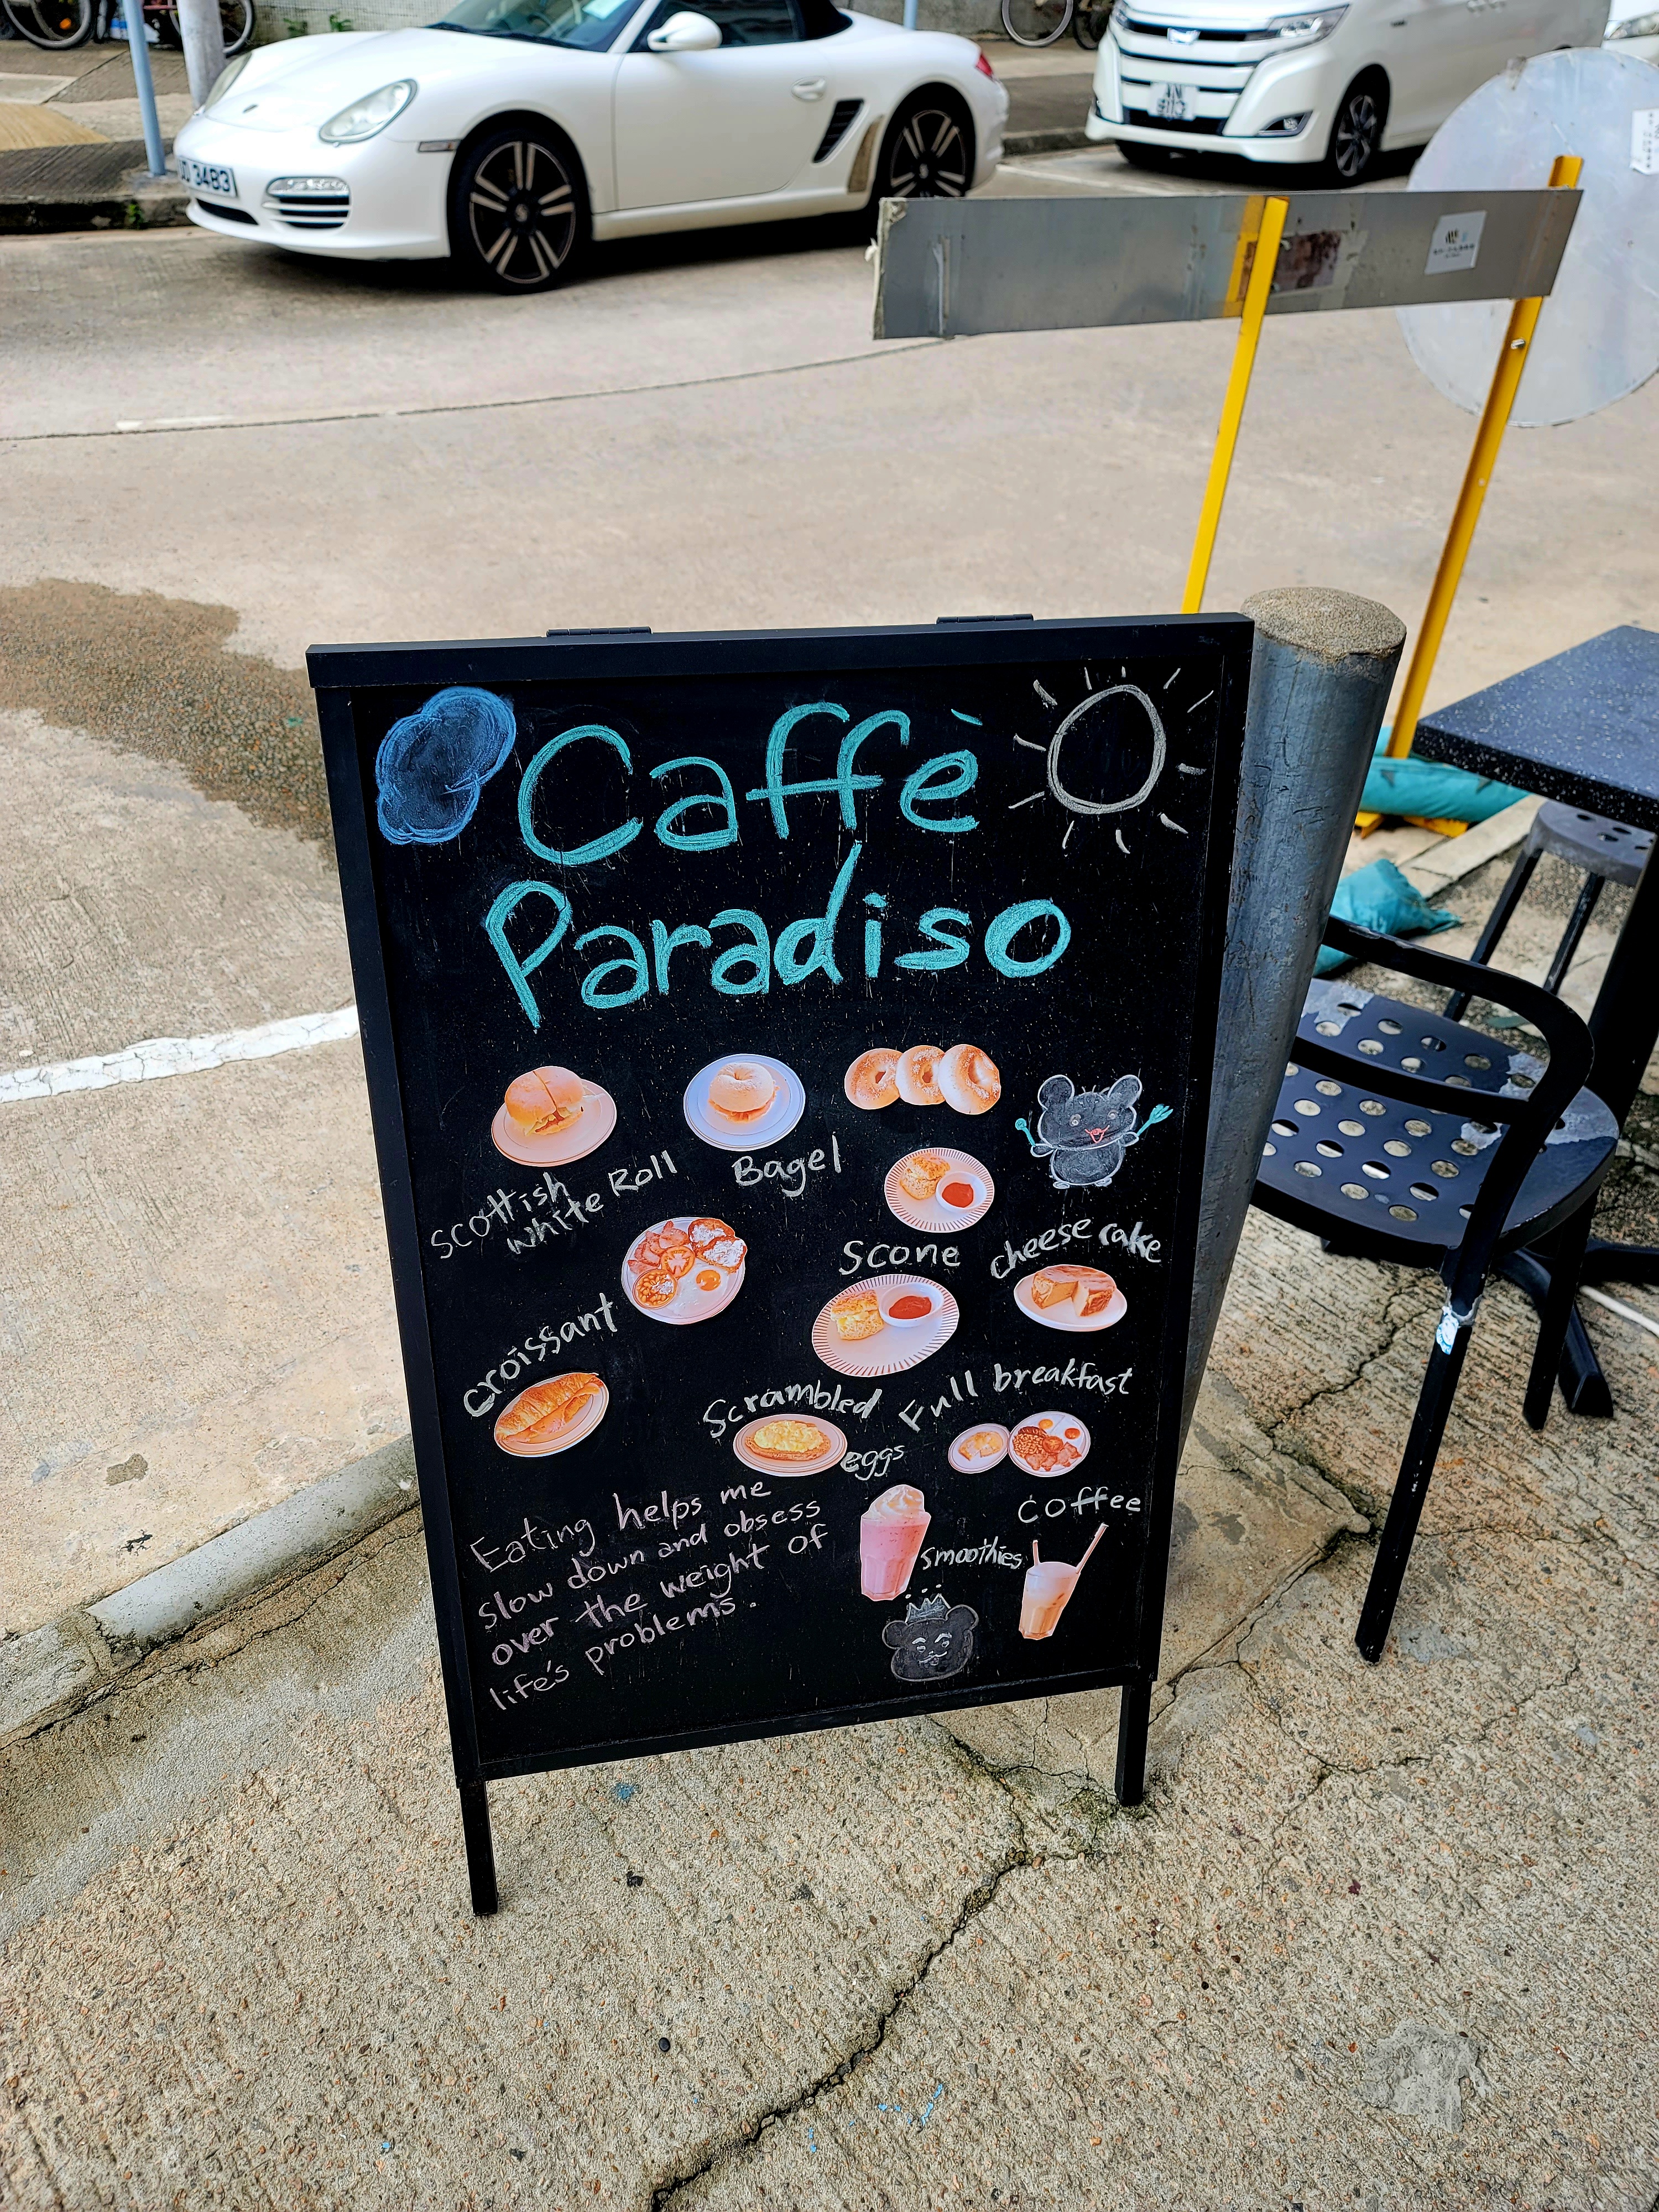 JD 3483
AN
8113
Caffè
Paradiso
Scottish
White Roll
Bagel
Scone
cheese cake
croissant
Scrambled
eggs
Full breakfast
Eating helps me
slow down and obsess
over the weight of
life's problems.
smoothies
coffee